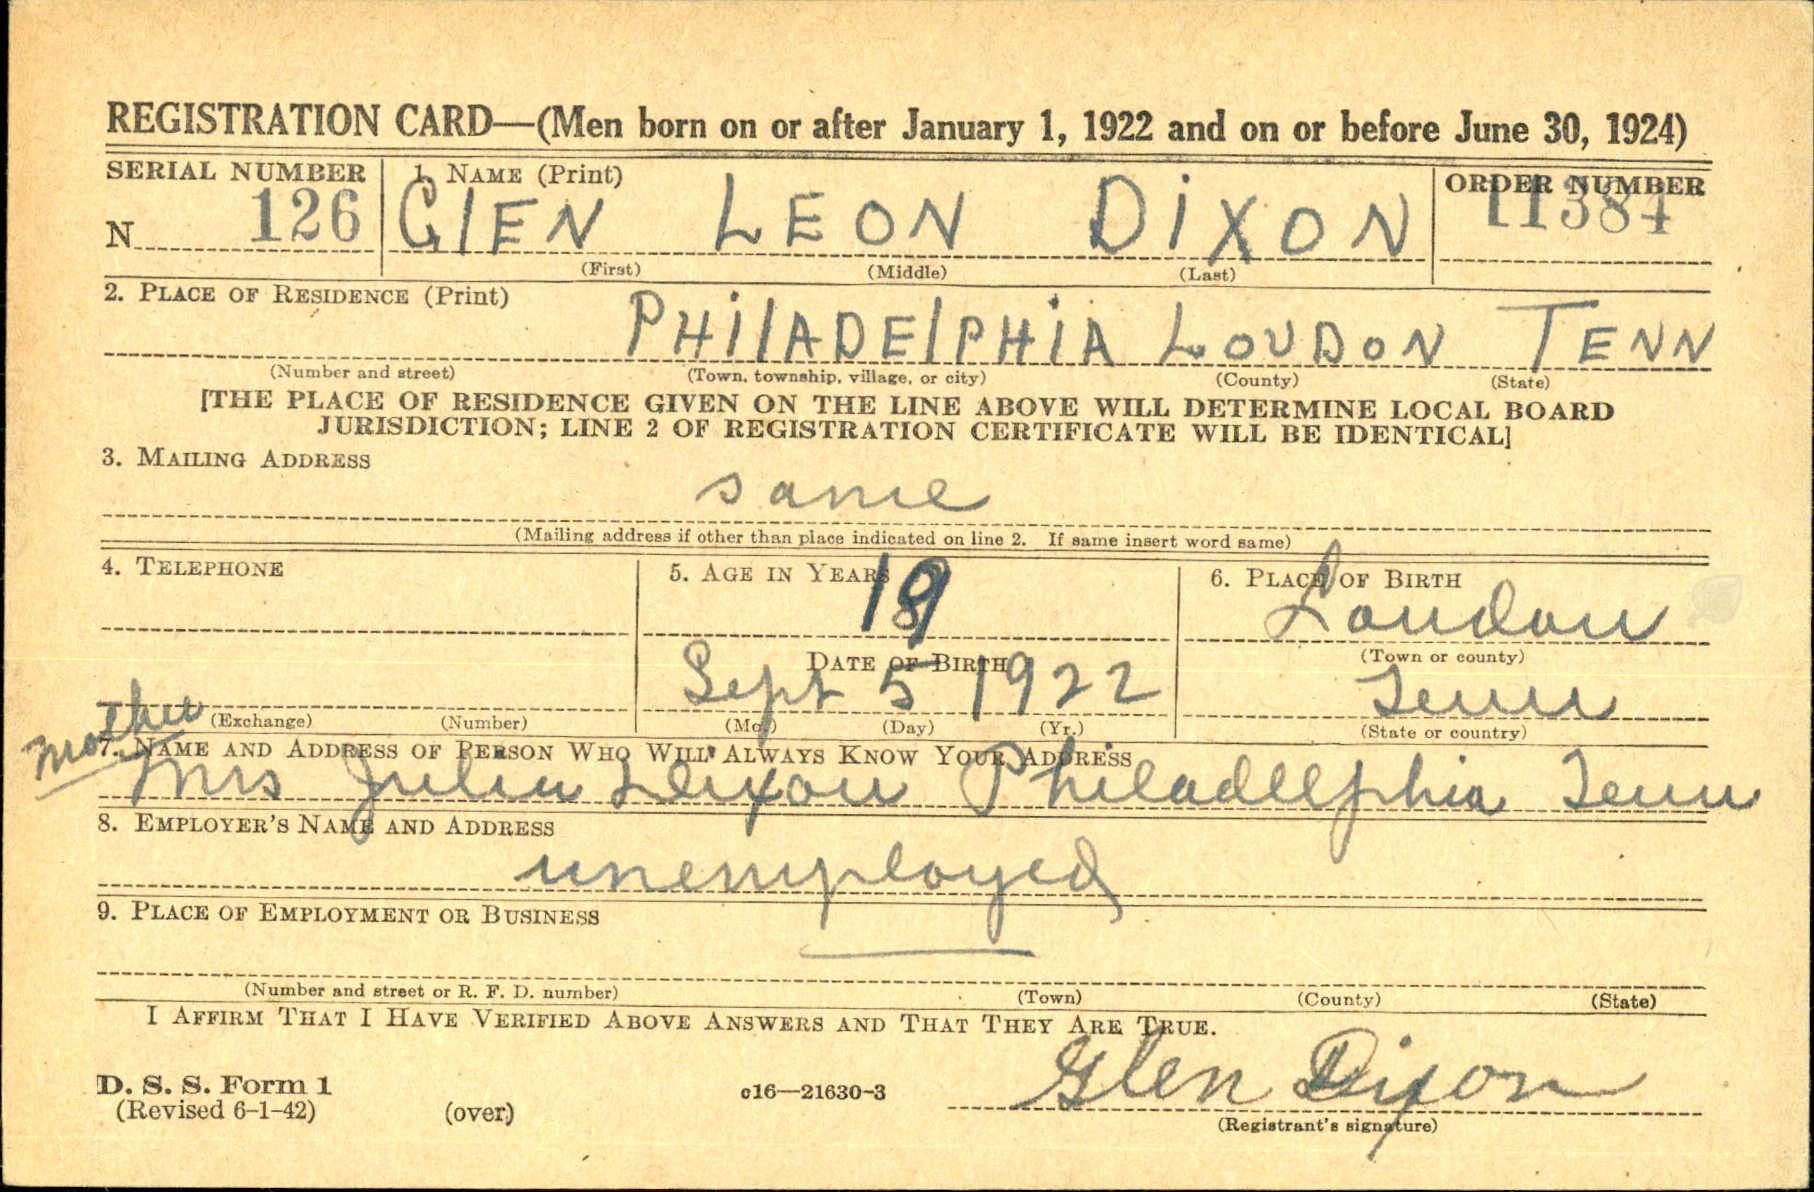 REGISTRATION CARD—(Men born on or after January 1, 1922 and on or before June 30, 1924)
SERIAL NUMBER 1. NAME (Print) ORDER NUMBER
N 126 GlEN LEON DiXON 11384
(First) (Middle) (Last)
2. PLACE OF RESIDENCE (Print)
PHilADElPHiA LOUDON TENN
(Number and street) (Town, township, village, or city) (County) (State)
[THE PLACE OF RESIDENCE GIVEN ON THE LINE ABOVE WILL DETERMINE LOCAL BOARD
JURISDICTION; LINE 2 OF REGISTRATION CERTIFICATE WILL BE IDENTICAL]
3. MAILING ADDRESS
same
(Mailing address if other than place indicated on line 2. If same insert word same)
4. TELEPHONE 5. AGE IN YEARS 6. PLACE OF BIRTH
19 Loudon
DATE OF BIRTH (Town or county)
Sept 5 1922 Tenn
(Exchange) (Number) (Mo.) (Day) (Yr.) (State or country)
Mother
7. NAME AND ADDRESS OF PERSON WHO WILL ALWAYS KNOW YOUR ADDRESS
Mrs Julia Dixon Philadelphia Tenn
8. EMPLOYER'S NAME AND ADDRESS
unemployed
9. PLACE OF EMPLOYMENT OR BUSINESS
(Number and street or R. F. D. number) (Town) (County) (State)
I AFFIRM THAT I HAVE VERIFIED ABOVE ANSWERS AND THAT THEY ARE TRUE.
Glen Dixon
D. S. S. Form 1
(Revised 6-1-42) (over) c16—21630-3
(Registrant's signature)